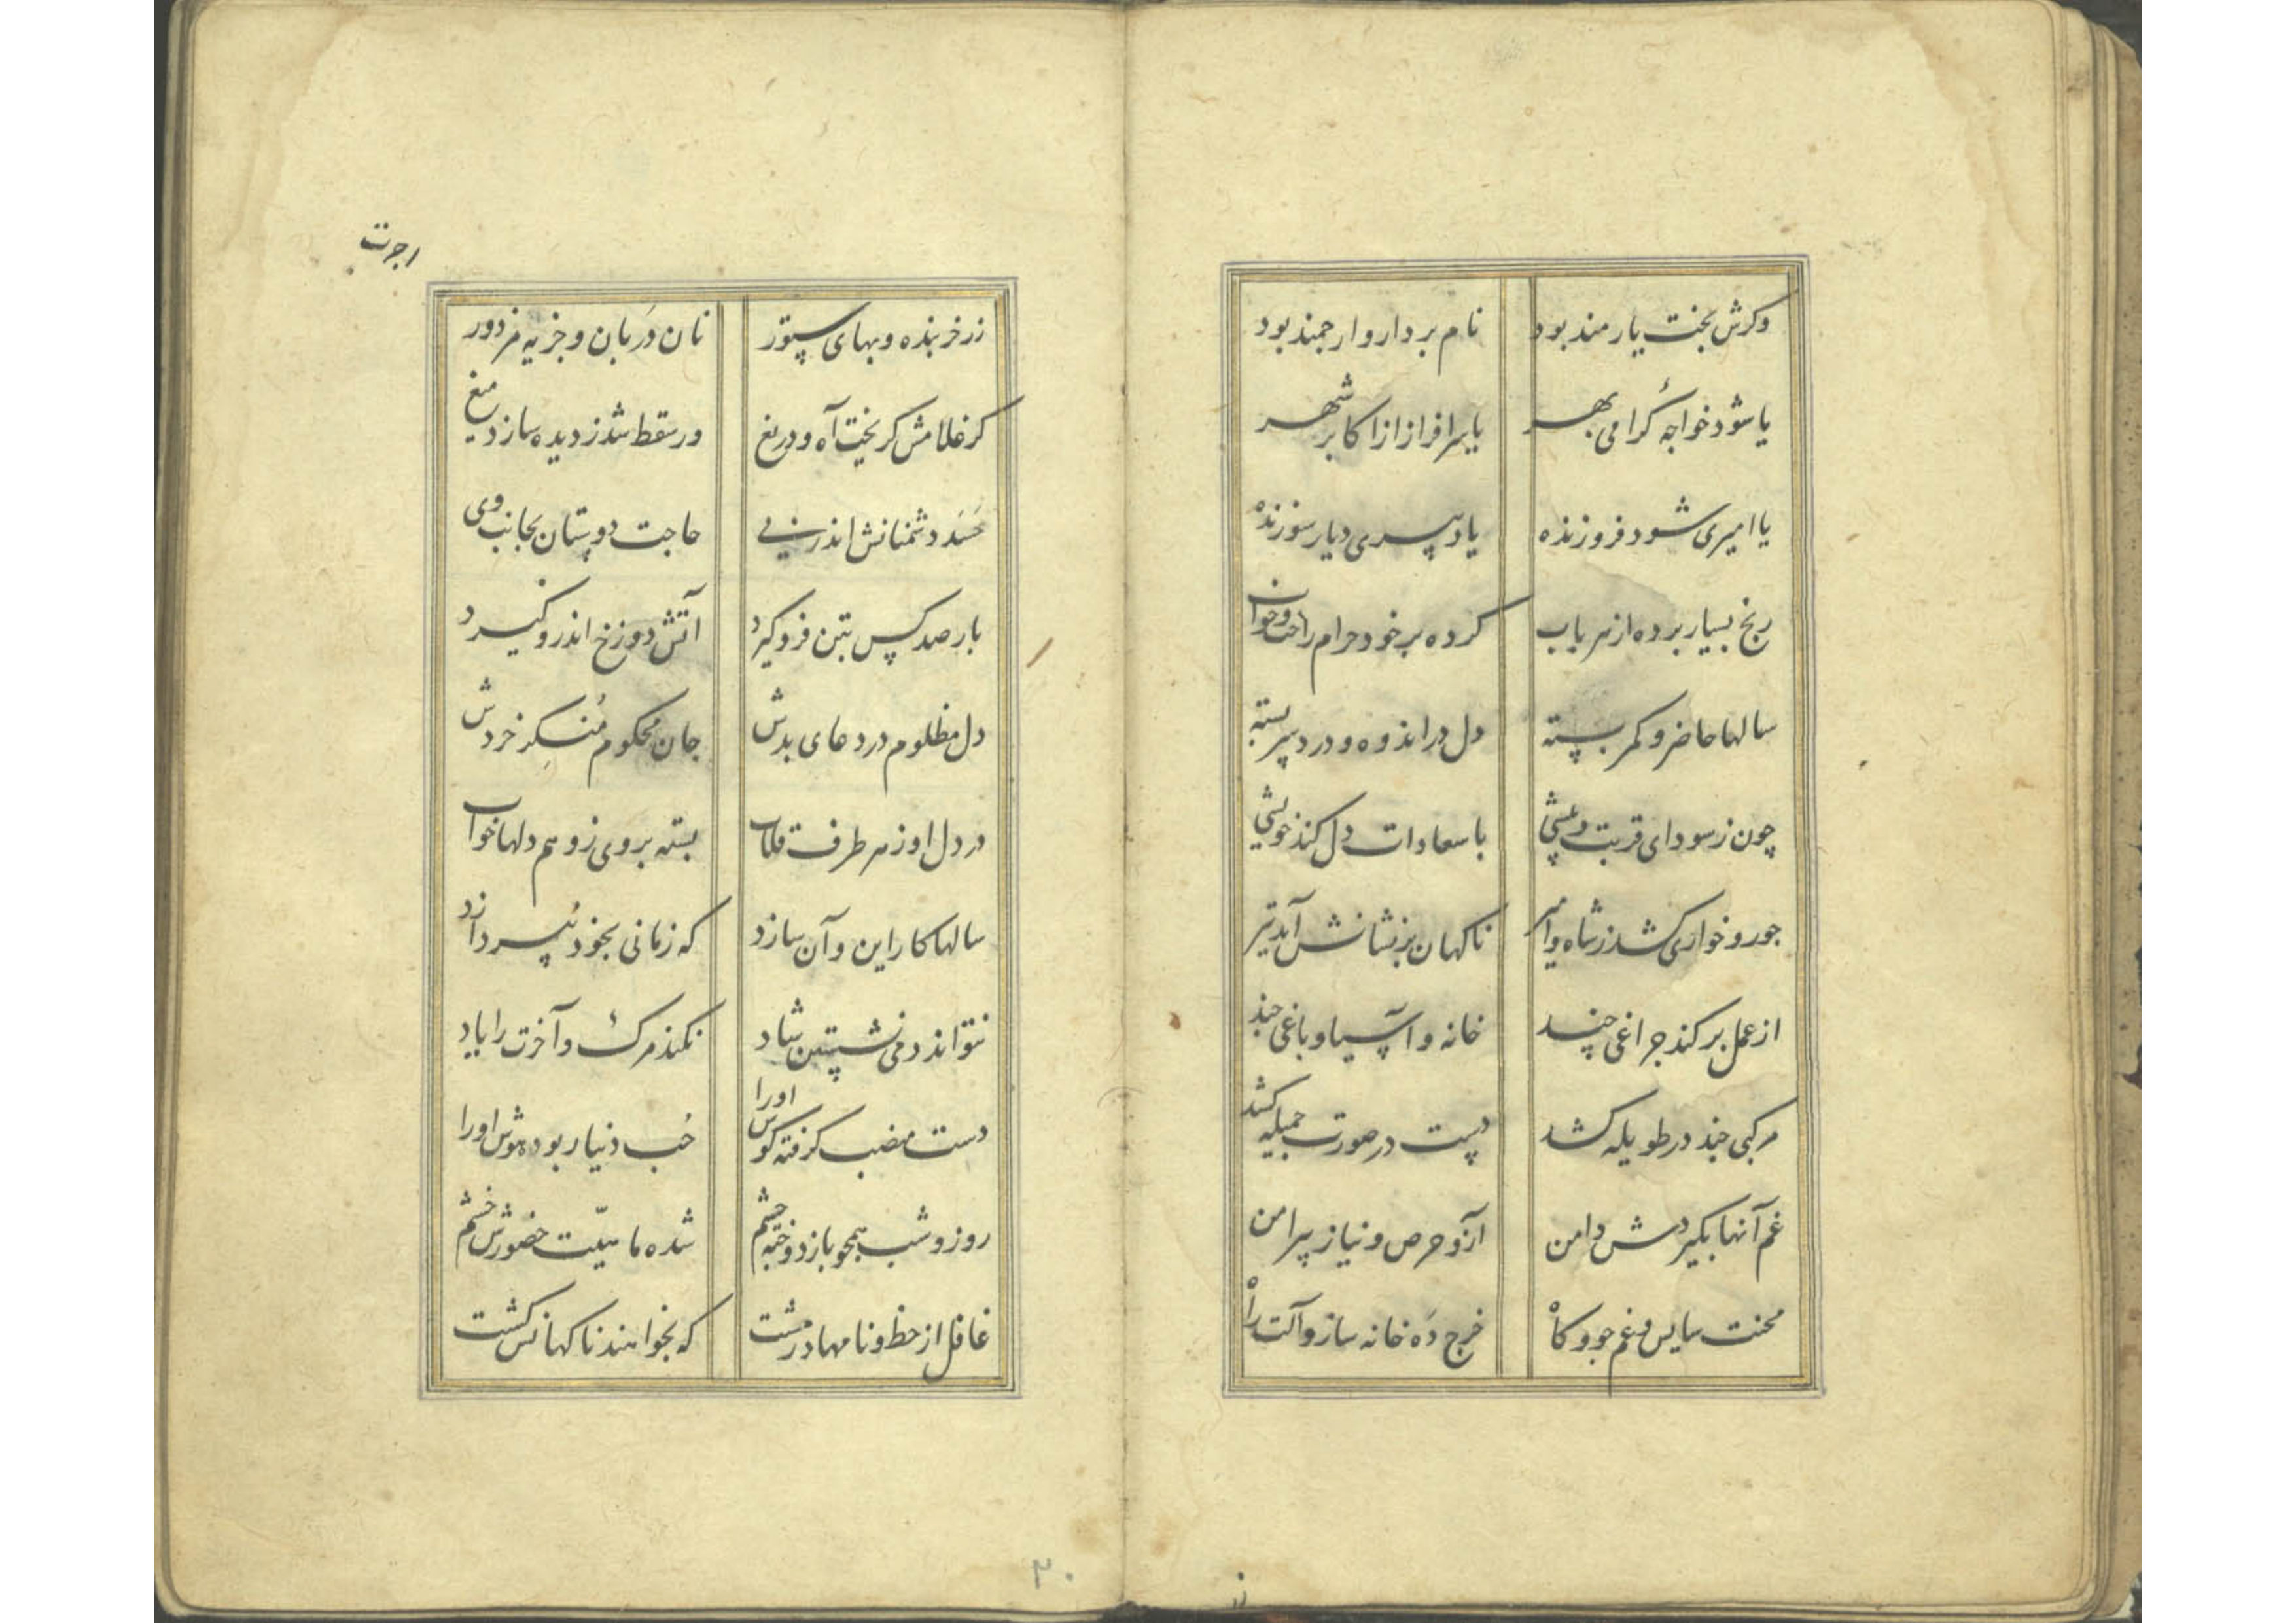 وکرش بخت یارمند بود نام بردار و ارجمند بود
یا شود خواجهٔ کرامی بهر یا سرافراز از اکابر شهر
یا امیری شود فروزنده یا دبیری دیار سوزنده
رنج بسیار برده از هر باب کرده بر خود حرام راحت و خواب
سالها حاضر و کمر بسته دل در اندوه و درد سر بسته
چون ز سودای قربت و پیشی با سعادات دل کند خویشی
جور و خواری کشد ز شاه و امیر ناکهان بر نشانش آید تیر
از عمل بر کند چراغی چند خانه و آسیا و باغی چند
مرکبی چند در طویله کشد دست در صورت جمیله کشد
غم آنها بکیردش دامن آز و حرص و نیاز پیرامن
محنت سایس و غم جو و کاه خرج ده خانه ساز و آلت راه
اجرت
زر خربنده و بهای ستور نان دربان و جزیه مزدور
کر غلامش کریخت آه و دریغ ور سقط شد ز دیده سازد میغ
حسد دشمنانش اندر پی حاجت دوستان بجانب وی
بار صد کس بتن فرو کیرد آتش دوزخ اندرو کیرد
دل مظلوم در دعای بدش جان محکوم منکر خردش
در دل او ز هر طرف قلاب بسته بر وی ز وهم دلها خواب
سالها کار این و آن سازد که زمانی بخود نپردازد
نتواند دمی نشستن شاد نکند مرک و آخرت را یاد
دست منصب کرفته کوش اورا حب دنیا ربوده هوش اورا
روز و شب همچو باز دوخته چشم شده ماهیت حضورش خشم
غافل از خط و نامها در مشت که بخواهند ناکهانش کشت
۳۰